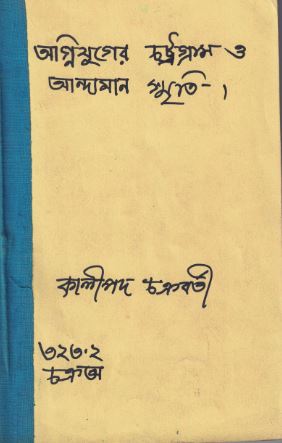 অগ্নিযুগের চট্টগ্রাম ও
আন্দামান স্মৃতি।
কালীপদ চক্রবর্তী
৩২৩.২
চক্রঅ